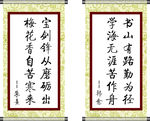 书山有路勤为径
学海无涯苦作舟
宝剑锋从磨砺出
梅花香自苦寒来